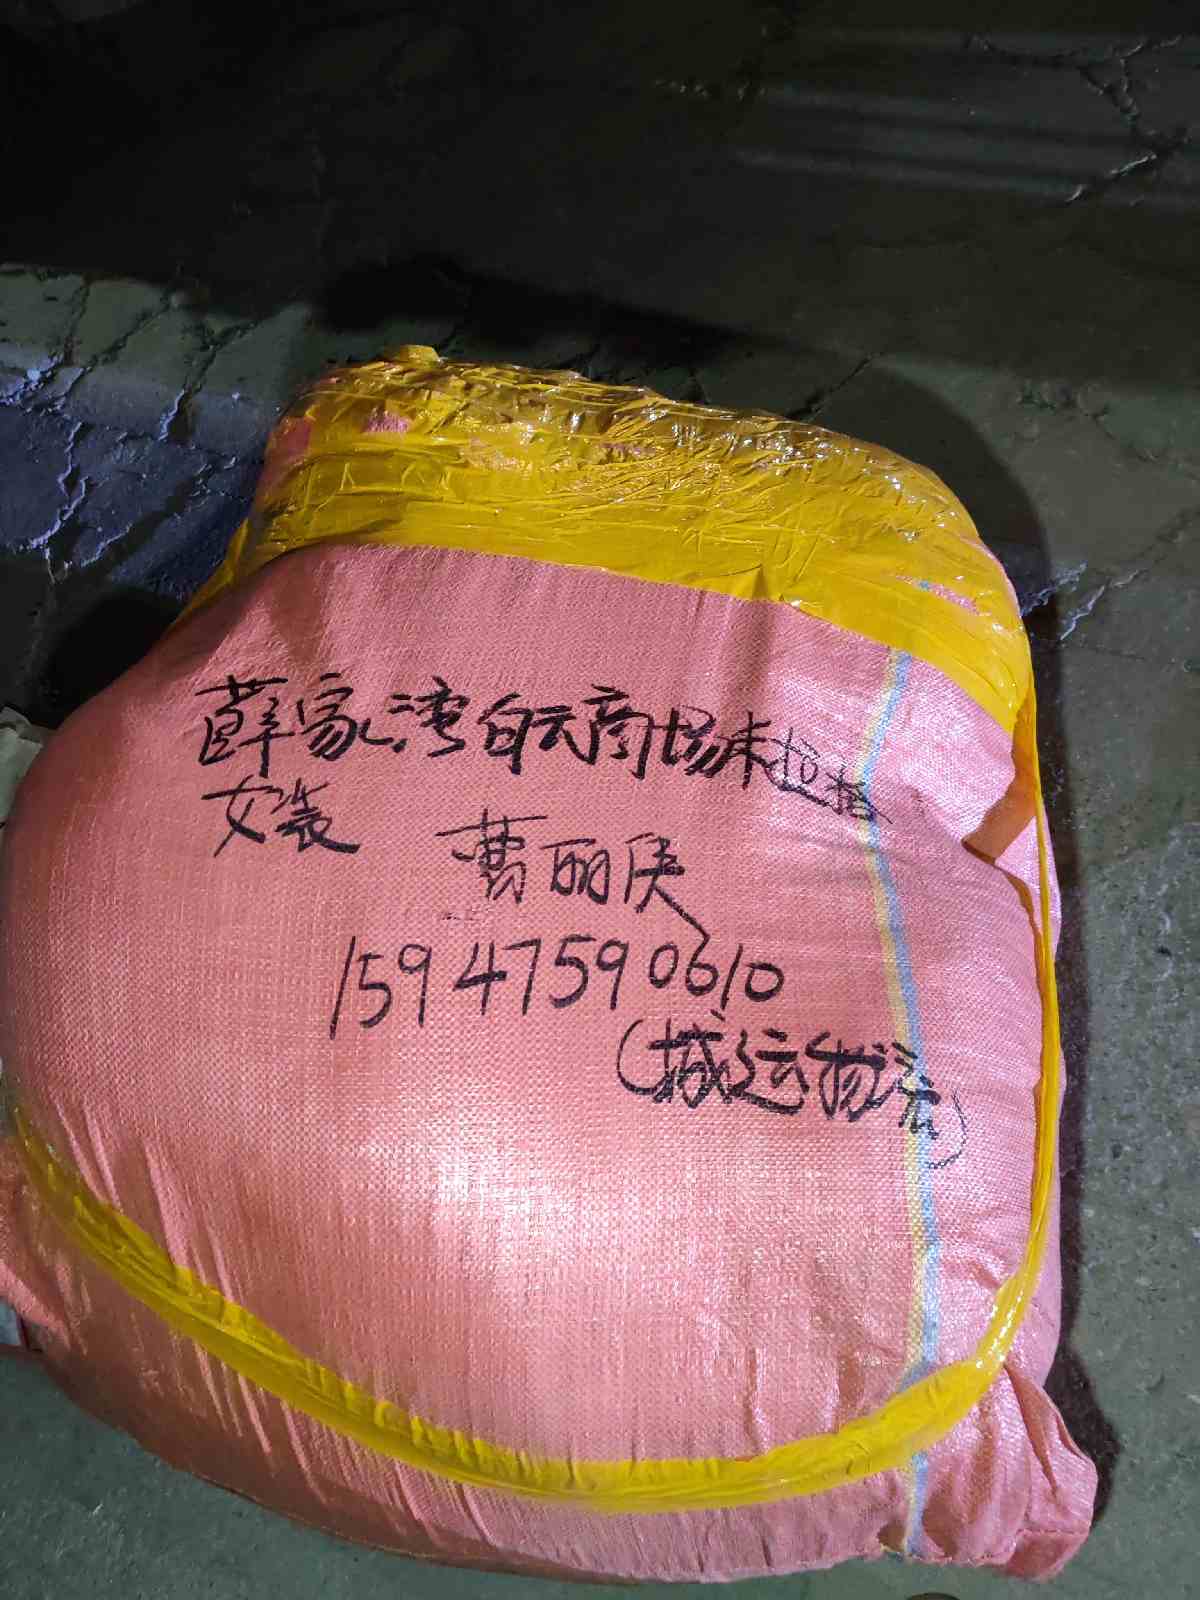 薛家湾白云商场末拉格
女装 曹丽侠
15947590610
(城运物流)